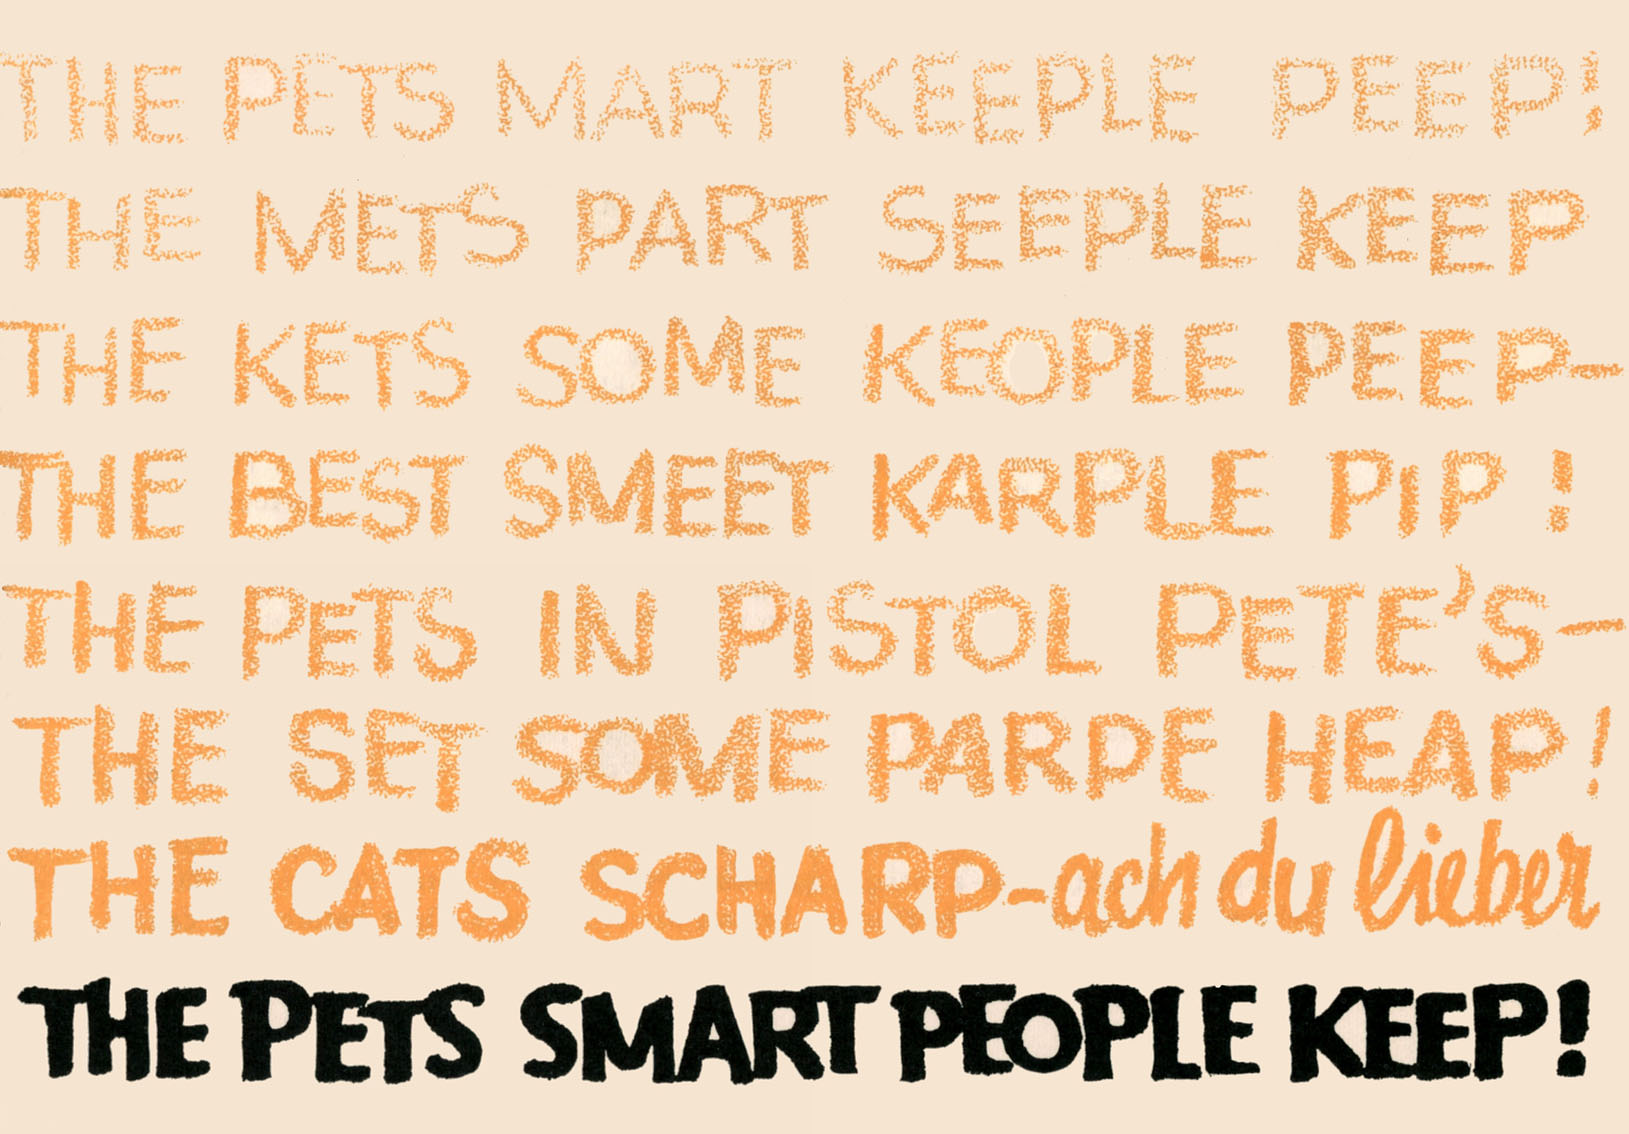 THE PETS MART KEEPLE PEEP!
THE METS PART SEEPLE KEEP
THE KETS SOME KEOPLE PEEP–
THE BEST SMEET KARPLE PIP!
THE PETS IN PISTOL PETE'S–
THE SET SOME PARPE HEAP!
THE CATS SCHARP–ach du lieber
THE PETS SMART PEOPLE KEEP!